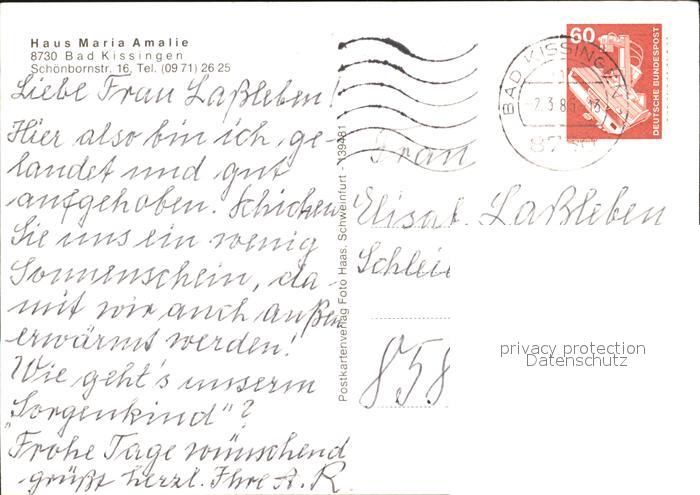 Haus Maria Amalie
8730 Bad Kissingen
Schönbornstr. 16, Tel. (09 71) 26 25
Liebe Frau Laßleben!
Hier also bin ich, ge-
landet und gut
aufgehoben. Schicken
Sie uns ein wenig
Sonnenschein, da-
mit wir auch außen
erwärmt werden!
Wie geht's unserm
"Sorgenkind"?
Frohe Tage wünschend
grüßt herzl. Ihre A. R.
Postkartenverlag Foto Haas, Schweinfurt - 139481
60
DEUTSCHE BUNDESPOST
BAD KISSINGEN
Frau
Elisab. Laßleben
858
privacy protection
Datenschutz